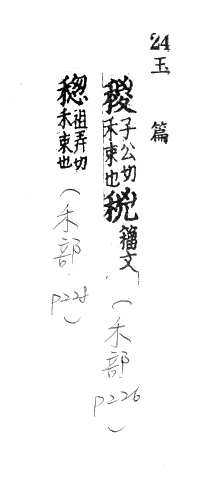 24
玉篇
稯子公切禾束也籀文
(禾部 p226)
祖弄切禾束也
(禾部)